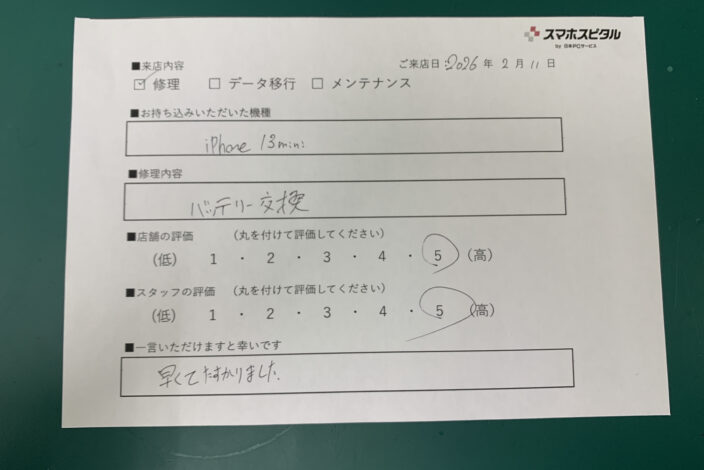 スマホスピタル
by 日本PCサービス
■来店内容 ご来店日:2026年2月11日
☑ 修理 □ データ移行 □ メンテナンス
■お持ち込みいただいた機種
iPhone 13mini
■修理内容
バッテリー交換
■店舗の評価 (丸を付けて評価してください)
(低) 1 ・ 2 ・ 3 ・ 4 ・ 5 (高)
■スタッフの評価 (丸を付けて評価してください)
(低) 1 ・ 2 ・ 3 ・ 4 ・ 5 (高)
■一言いただけますと幸いです
早くてたすかりました。